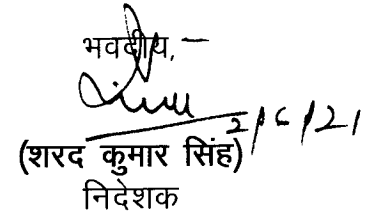 भवदीय,
2/6/21
(शरद कुमार सिंह)
निदेशक